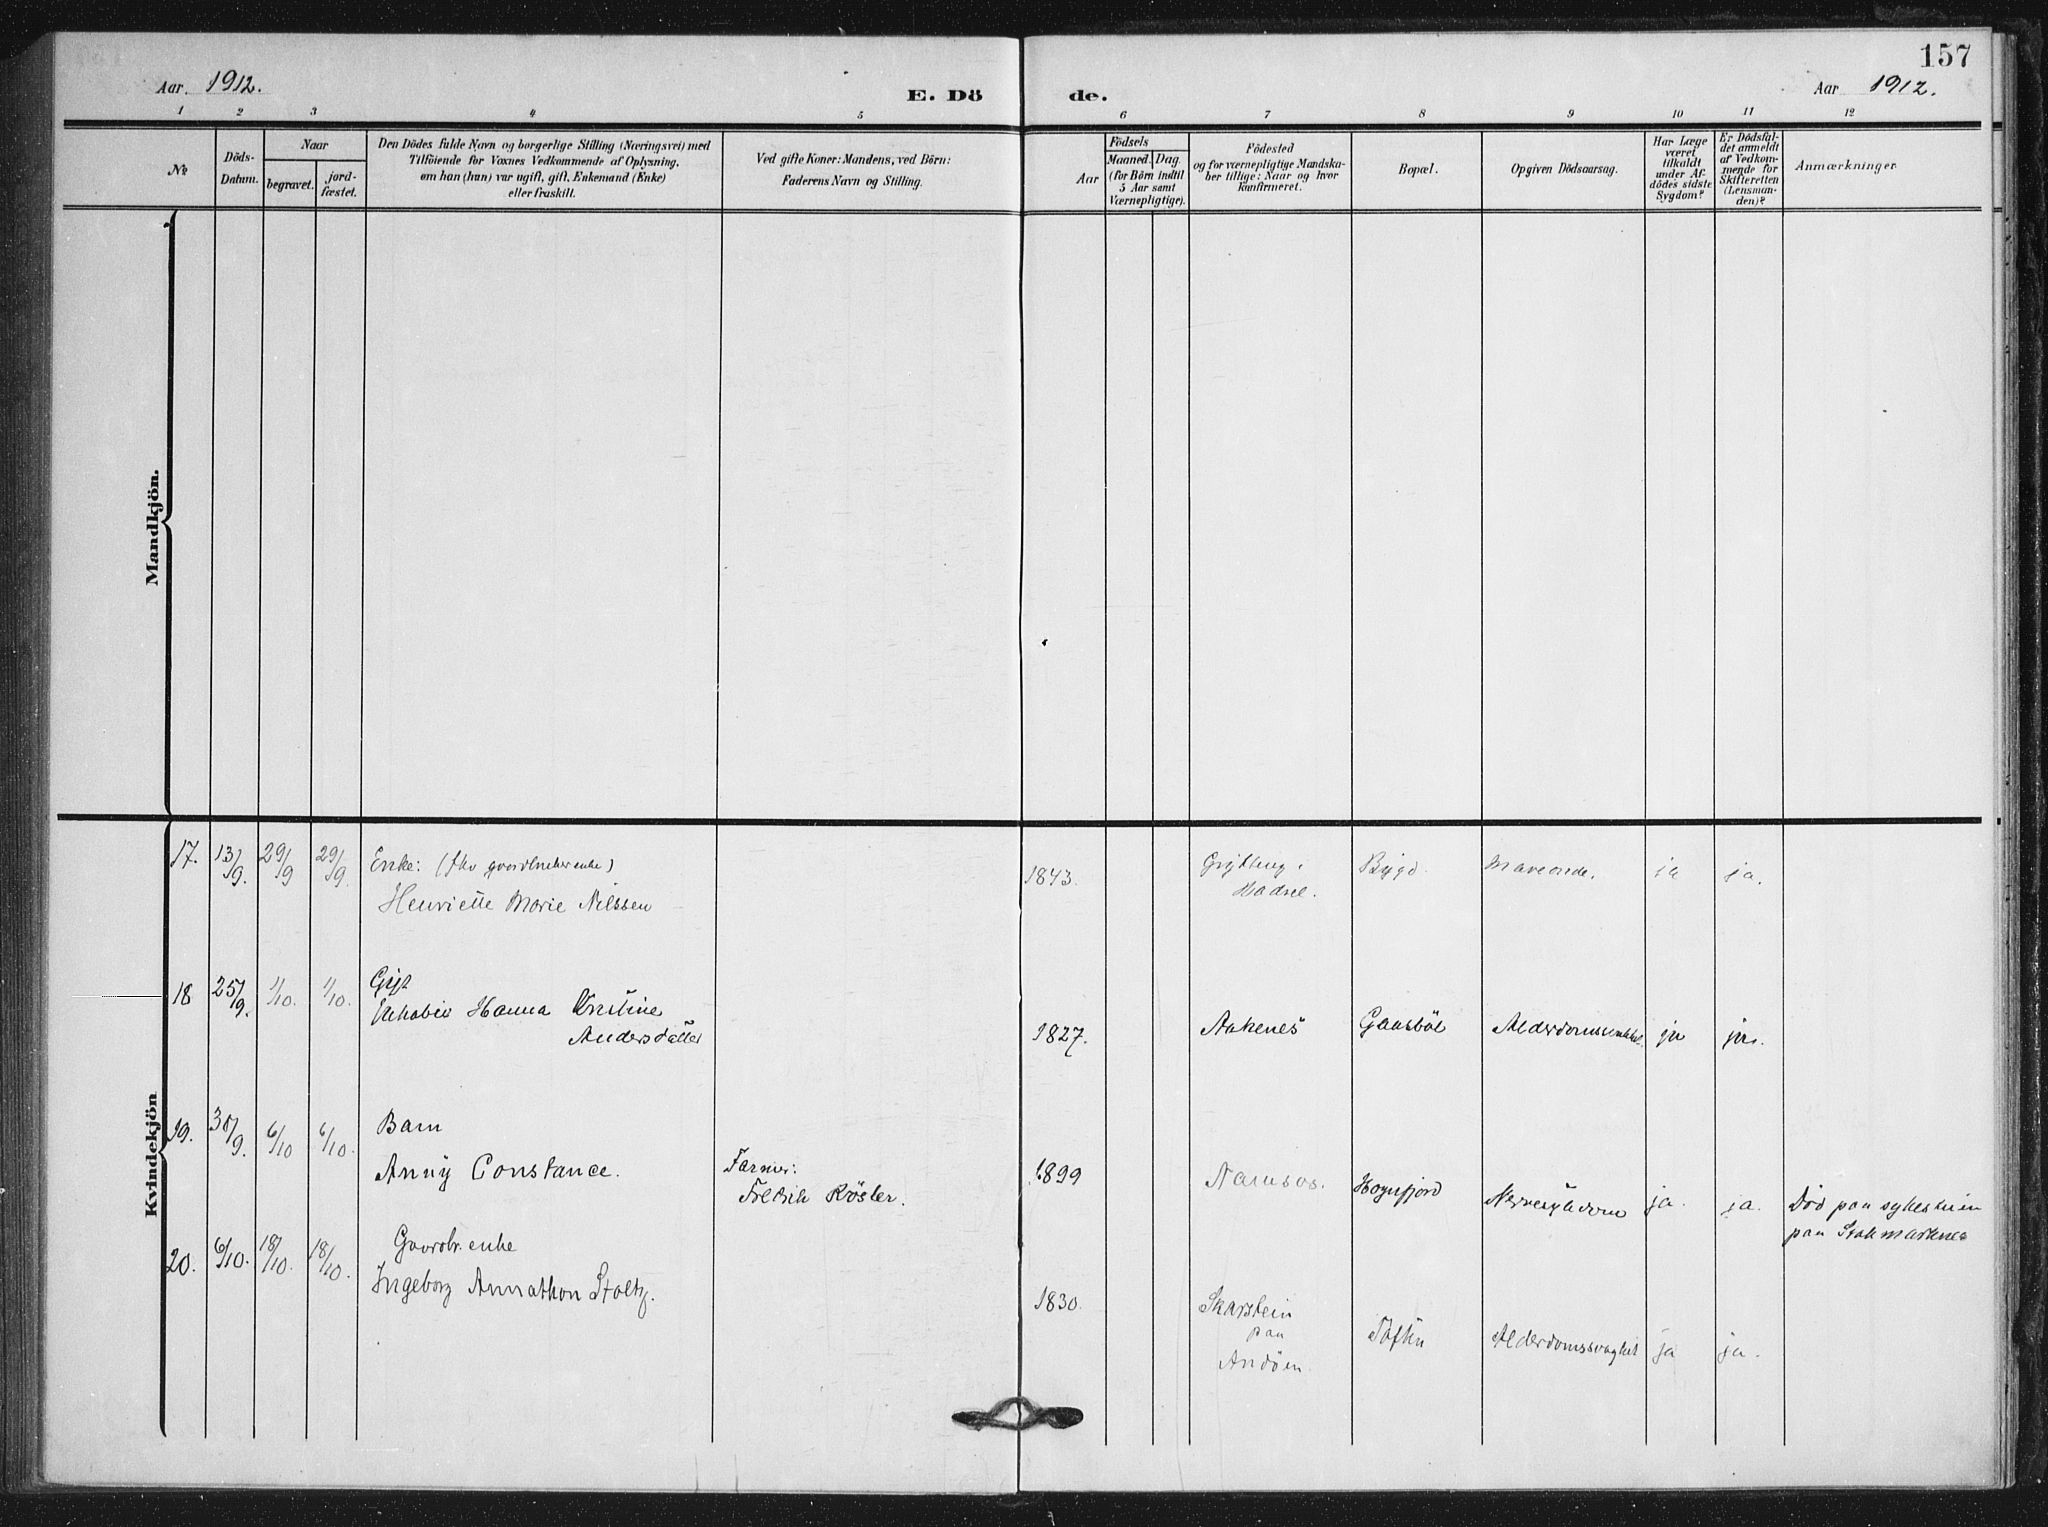 157
Aar. 1912.
E. Dö de.
Aar 1912.
1 2 3 4 5 6 7 8 9 10 11 12
No
Döds-
Datum.
Naar
begravet.
jord-
fæstet.
Den Dödes fulde Navn og borgerlige Stilling (Næringsvei) med
Tilföiende for Voxnes Vedkommende af Oplysning,
om han (hun) var ugift, gift, Enkemand (Enke)
eller fraskilt.
Ved gifte Koner: Mandens, ved Börn:
Faderens Navn og Stilling.
Födsels
Aar
Maaned. Dag.
(for Börn indtil
5 Aar samt
Værnepligtige).
Födested
og for værnepligtige Mandska-
ber tillige: Naar og hvor
konfirmeret.
Bopæl.
Opgiven Dödsaarsag.
Har Læge
været
tilkaldt
under Af-
dödes sidste
Sygdom?
Er Dödsfal-
det anmeldt
af Vedkom-
mende for
Skifteretten
(Lensman-
den)?
Anmærkninger
Mandkjön.
Kvindekjön
17. 13/9. 29/9 29/9. Enke:
Henriette Marie Nilssen
1843.
Hadsel.
Bygd. ja ja.
18 25/9. 1/10. 1/10. Gift
Hanna
Andersdatter
1827. Aakenes Gaasböl ja ja.
19. 6/10 6/10. Barn
Anny Constance.
Farmer:
Fredrik Rösler.
1899 Namsos. Hognfjord ja. ja. Död paa sykestuen
paa Stokmarknes
20. 6/10. 18/10. 18/10. Gaardbr. enke
Ingeborg Annathon Stoltz.
1830. Skarstein
paa
Andöen.
Toften Alderdomssvaghet ja ja.